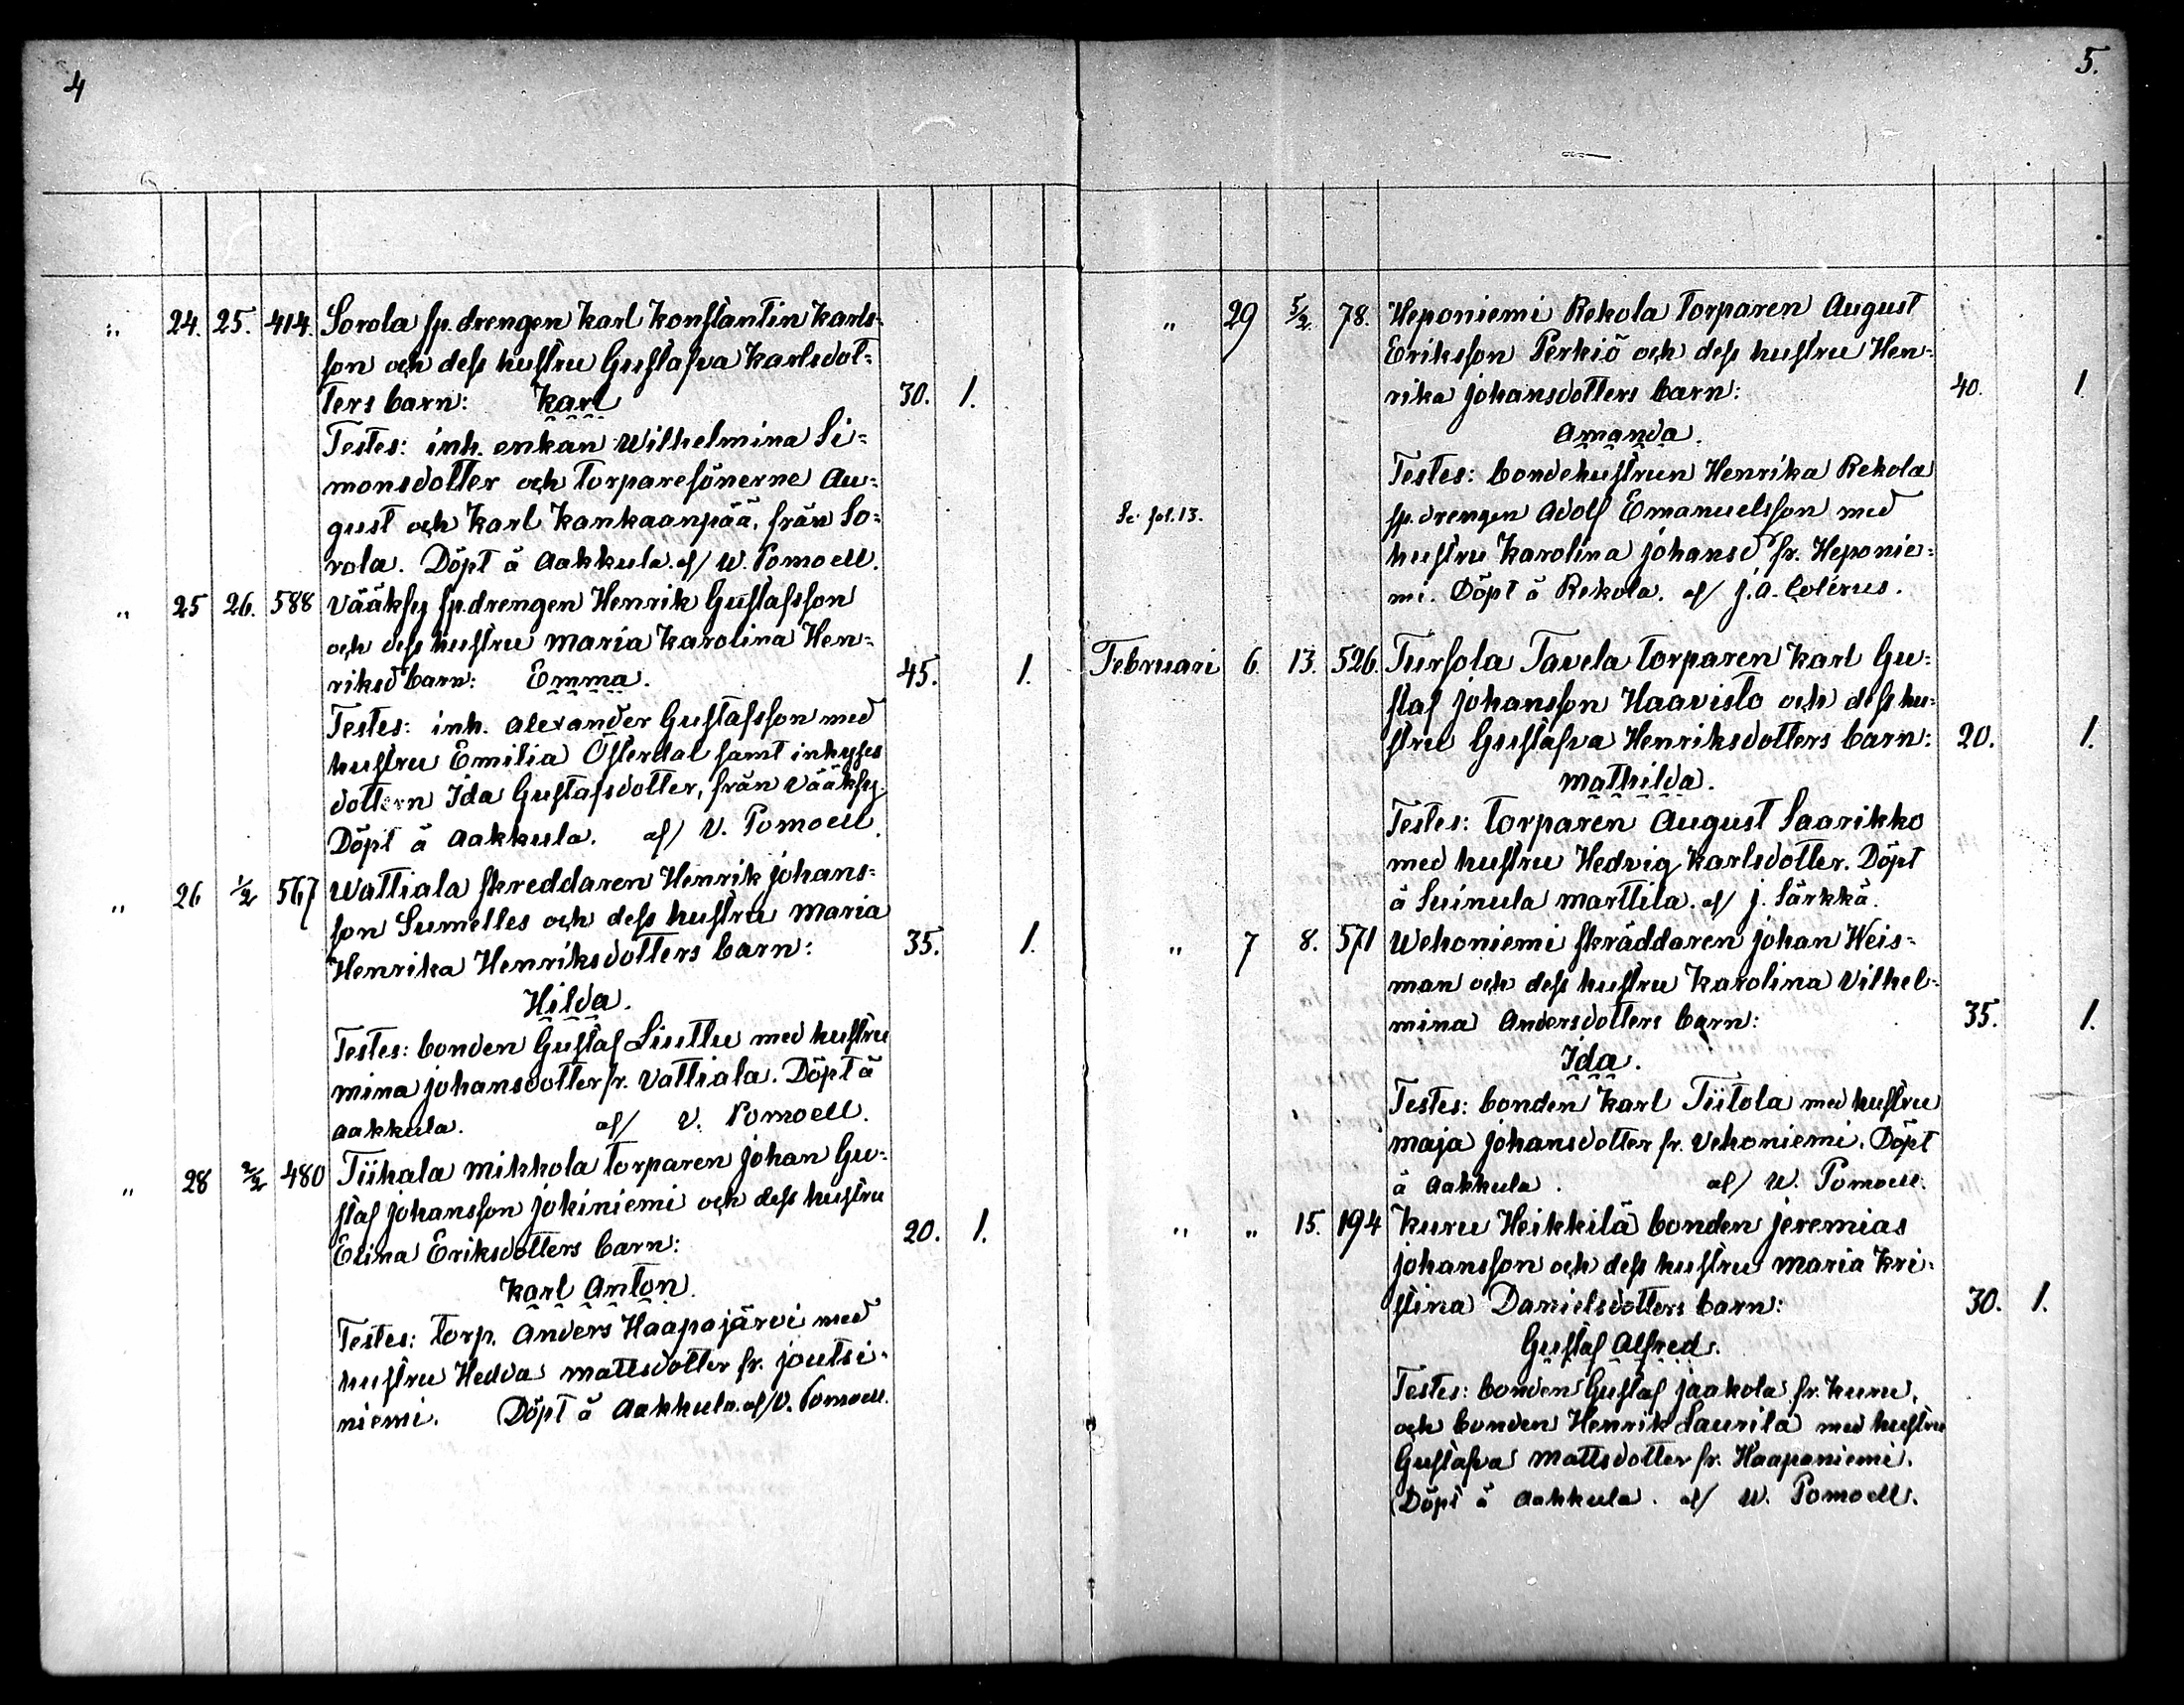 4
„ 24. 25. 414. Sorola sp.drengen Karl Konstantin Karls-
son och dess hustru Gustafva Karlsdot-
ters barn: Karl 30. 1.
Testes: inh. enkan Wilhelmina Si-
monsdotter och torparesönerne Au-
gust och Karl Kankaanpää, från So-
rola. Döpt å Aakkula. af/ W. Pomoell.
„ 25 26. 588 Vääksy sp.drengen Henrik Gustafsson
och dess hustru Maria Karolina Hen-
riksd barn: Emma. 45. 1.
Testes: inh. Alexander Gustafsson med
hustru Emilia Österdal samt inhyses
dottern Ida Gustafsdotter, från Vääksy.
Döpt å Aakkula. af/ V. Pomoell.
„ 26 1/2 567 Wattiala skreddaren Henrik Johans-
son Sumelles och dess hustru Maria
Henrika Henriksdotters barn: 35. 1.
Hilda.
Testes: bonden Gustaf Liuttu med hustru
Mina Johansdotter fr. Vattiala. Döpt å
Aakkula. af/ V. Pomoell.
„ 28 2/2 480 Tiihala Mikkola torparen Johan Gu-
staf Johansson Jokiniemi och dess hustru
Elina Eriksdotters barn: 20. 1.
Karl Anton.
Testes: torp. Anders Haapajärvi med
hustru Hedda Mattsdotter fr. Joutsi-
niemi. Döpt å Aakkula. af/ V. Pomoell.
5.
„ 29 5/2 78. Heponiemi Rekola torparen August
Eriksson Perkiö och dess hustru Hen-
rika Johansdotters barn: 40. 1.
Amanda.
Testes: bondehustrun Henrika Rekola
Se fol. 13. sp.drengen Adolf Emanuelsson med
hustru Karolina Johansd fr. Heponie-
mi. Döpt å Rekola. af/ J. A. Colérus.
Februari 6. 13. 526. Tursola Tavela torparen Karl Gu-
staf Johansson Haavisto och dess hu-
stru Gustafva Henriksdotters barn: 20. 1.
Mathilda.
Testes: torparen August Saarikko
med hustru Hedvig Karlsdotter. Döpt
å Suinula Marttila. af/ J. Särkkä.
„ 7 8. 571 Wehoniemi skräddaren Johan Weis-
man och dess hustru Karolina Vilhel-
mina Andersdotters barn: 35. 1.
Ida.
Testes: bonden Karl Tiitola med hustru
Maja Johansdotter fr. Vehoniemi. Döpt
å Aakkula. af/ W. Pomoell.
„ „ 15. 194 Kuru Heikkilä bonden Jeremias
Johansson och dess hustru Maria Kri-
stina Danielsdotters barn: 30. 1.
Gustaf Alfred.
Testes: bonden Gustaf Jaakola fr. Kuru,
och bonden Henrik Laurila med hustru
Gustafva Mattsdotter fr. Haapaniemi.
Döpt å Aakkula. af/ W. Pomoell.